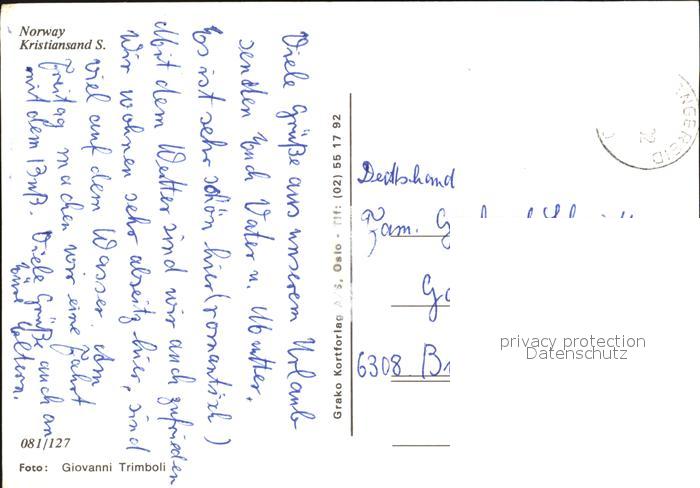 Norway
Kristiansand S.
Viele Grüße aus unserem Urlaub
senden Euch Vater u. Mutter.
Es ist sehr schön hier (romantisch)
Mit dem Wetter sind wir auch zufrieden
Wir wohnen sehr abseitz hier, sind
viel auf dem Wasser. Am
Freitag machen wir eine Fahrt
mit dem Buß. Viele Grüße auch an
Eure Eltern.
081/127
Foto: Giovanni Trimboli
Grako Kortforlag A/S, Oslo - Tlf: (02) 55 17 92
Deutschand
Fam. G
6308 B
privacy protection
Datenschutz